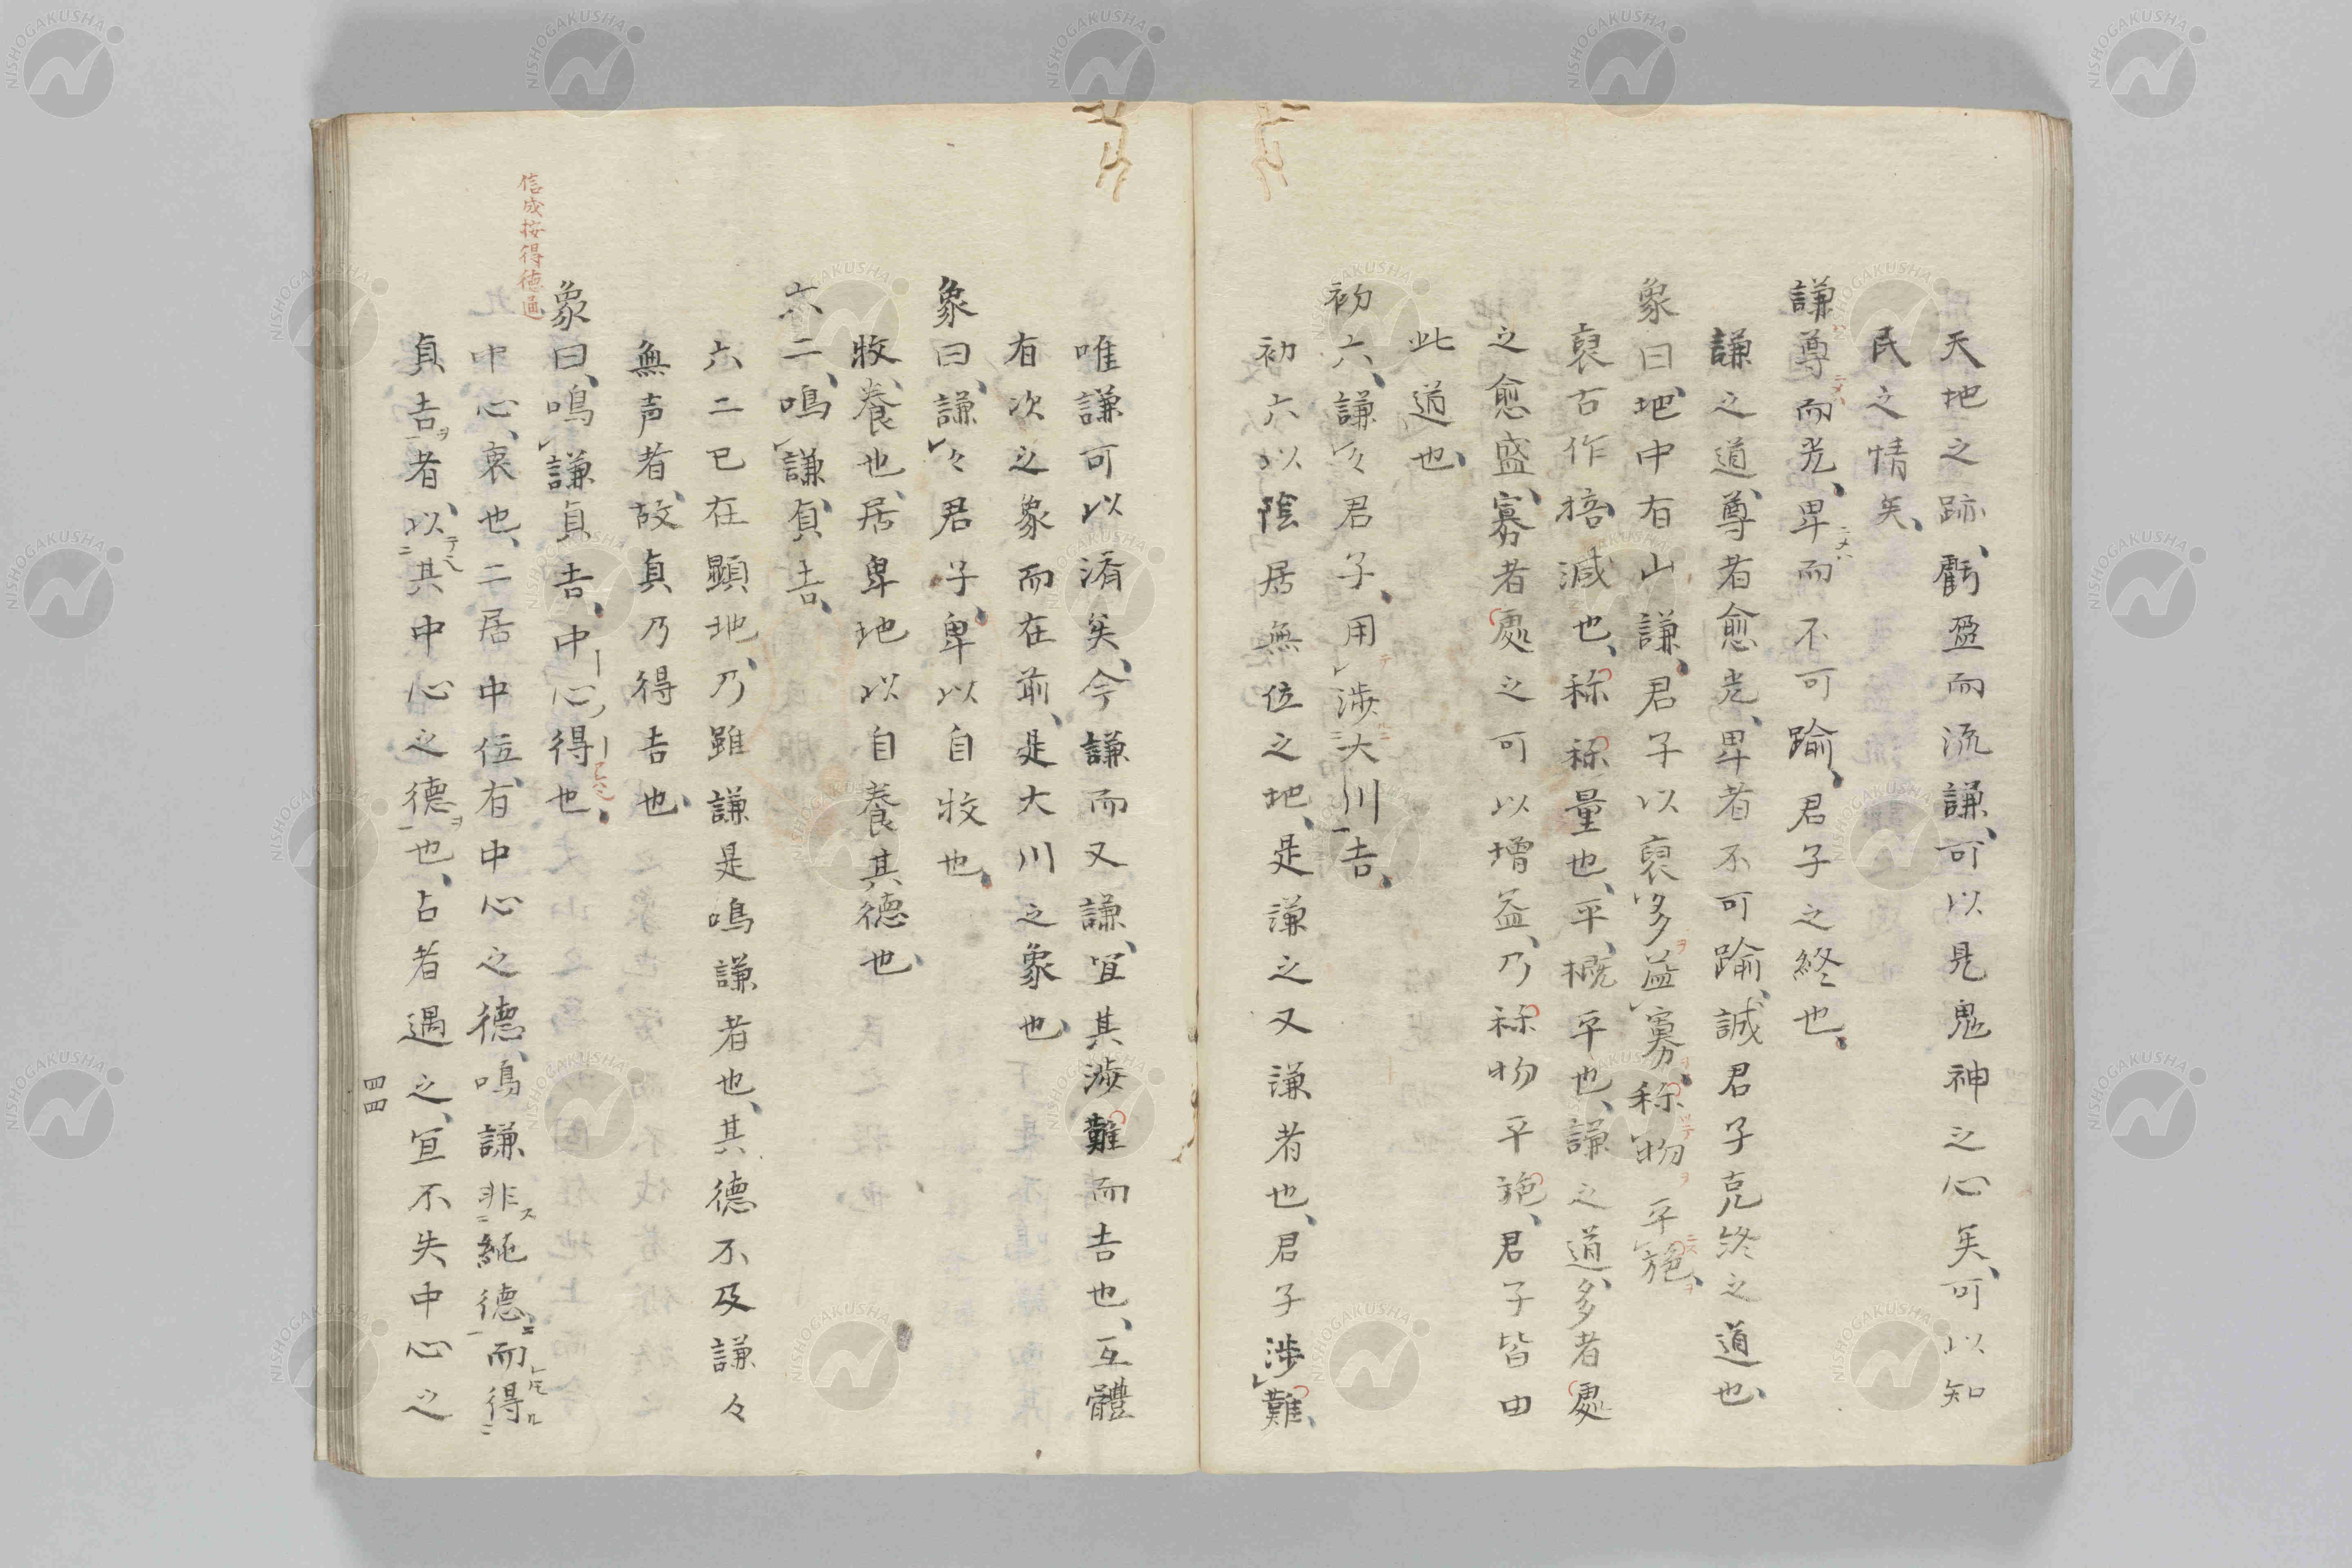 天地之跡、虧盈而流謙、可以見鬼神之心矣、可以知
民之情矣、
謙尊而光、卑而不可踰、君子之終也、
謙之道、尊者愈光、卑者不可踰、誠君子克終之道也、
象曰、地中有山謙、君子以裒多益寡、称物平施、
裒古作掊、減也、称称量也、平、概平也、謙之道、多者處
之愈盛、寡者處之可以増益、乃称物平施、君子皆由
此道也、
初六、謙々君子、用涉大川吉、
初六以陰居無位之地、是謙之又謙者也、君子涉難、
唯謙可以済矣、今謙而又謙、宜其涉難而吉也、互體
有次之象而在前、是大川之象也、
象曰、謙々君子、卑以自牧也、
牧、養也、居卑地以自養其德也、
六二、鳴謙、貞吉、
六二已在顕地、乃雖謙是鳴謙者也、其德不及謙々
無声者、故貞乃得吉也、
象曰、鳴謙貞吉、中心得也、
中心、衷也、二居中位、有中心之德、鳴謙非純德而得
貞吉者、以其中心之德也、占者遇之、宜不失中心之
信成按得徳通
四四
NISHOGAKUSHA